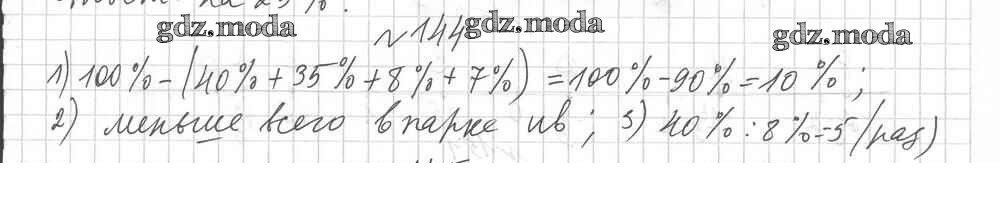 gdz.moda №144 gdz.moda gdz.moda
1) 100% - (40% + 35% + 8% + 7%) = 100% - 90% = 10%;
2) меньше всего в парке ив; 3) 40% : 8% = 5 (раз)